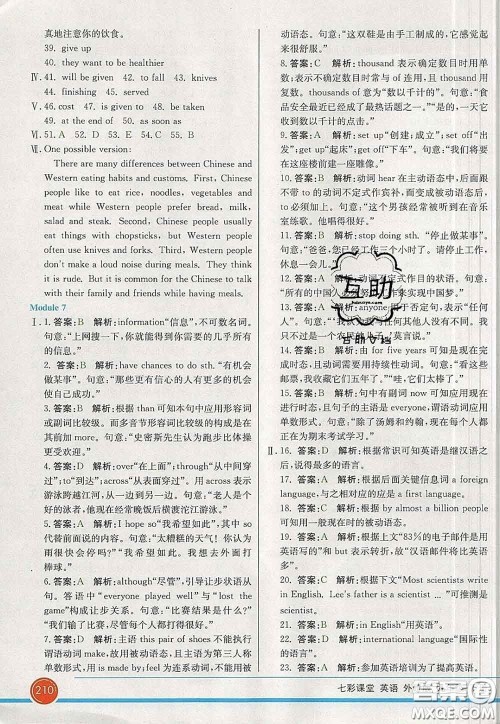 真地注意你的饮食。
39. give up
40. they want to be healthier
Ⅳ. 41. will be given  42. to fall  43. knives
44. finishing  45. served
Ⅴ. 46. cost  47. is given to  48. to be taken
49. at the end of  50. as soon as
Ⅵ. 51. A  52. D  53. E  54. B  55. C
Ⅶ. One possible version:
There are many differences between Chinese and
Western eating habits and customs. First, Chinese
people like to eat rice, noodles, vegetables and
meat while Western people prefer bread, milk,
salad and steak. Second, Chinese people usually
eat things with chopsticks, but Western people
often use knives and forks. Third, Western people
don't make a loud noise during meals. They think
it is rude. But it is common for the Chinese to talk
with their family and friends while having meals.
Module 7
Ⅰ. 1. 答案:B 解析:information“信息”,不可数名词。
句意:“上网搜一下,你就能获得几乎所有的
信息。”
2. 答案:B 解析:have chances to do sth. “有机会
做某事”。句意:“那些更有信心的人有更多的机会
使自己成功。”
3. 答案:B 解析:根据than可知本句中应用形容词
或副词比较级。而多音节副词的比较级的构成是在
其前加more。句意:“史密斯先生认为步行去那儿
更加安全。”
4. 答案:D 解析:over“在上面”;through“从中间穿
过”;to“到达”;across“从表面穿过”。用across表示
游泳跨越大江河(从表面横过)。句意:“老人是个
很好的泳者,他现在经常晚饭后横渡沱江。”
5. 答案:A 解析:I hope so“我希望如此”,so代
替前面的内容。句意:“太糟糕的天气!你认为
雨很快会停吗?”“我希望如此。我想要到外面打
棒球。”
6. 答案:A 解析:although“尽管”,引导让步状语从
句。“everyone played well”与“lost the
game”构成让步关系。句意:“比赛结果是什么?”
“我们输了比赛,尽管每个人都发挥得很好。”
7. 答案:D 解析:主语this pair of shoes不能做
谓语动词make的发出者,且主语为第三人称
单数形式,用is made by;feel为连系动词,不能用被
动语态。句意:“这双鞋是由手工制成的,它感觉
非常柔软。”
8. 答案:C 解析:thousand表示确定数目时用单
数;表示不确定数目时常与of连用,且thousand用
复数。thousands of意为“数以千计的”。句意:“食
品安全最近已经成了最热话题之一。”“是的,一天它
被数以千计的点击。”
9. 答案:A 解析:set up“创建;成立”;set off“出
发”;get up“起床”;get off“下车”。句意:“我们学校的
楼前建有一座雕像。”
10. 答案:A 解析:动词hear在主动语态中,后面
跟不带to的动词不定式作宾补,被动语态中要
还原带to。句意:“这个男孩经常被听到在音乐
室练歌。他唱得很好。”
11. 答案:A 解析:stop doing sth. “停止做某事”。
句意:“爸爸,您已经工作三个小时了。请停止工作,
休息一会儿。”
14. 答案:C 解析:由for five years可知是现在完
成时,且动词需要用持续性动词。句意:“看!
我收藏着我们它五年了。”“哇,它们真漂亮。”
15. 答案:B 解析:句中有副词now可知应用现在
进行时,且句子的主语是everyone,谓语动词应用单
数形式。句意:“除了汤姆和约翰,每个人现在都
在为期末考试学习。”
Ⅱ. 16. 答案:D 解析:根据常识可知英语已被用作
最广泛的语言。
17. 答案:C 解析:根据后面关键信息a foreign
language.可知答案应是a first language。
18. 答案:C 解析:根据by almost a billion people
可知用the被动语态。
19. 答案:D 解析:根据上文“83%的电子邮件是用
英语写的”和but表示转折,故“汉语邮件将比英语
多”。
20. 答案:A 解析:根据下文“Most scientists write
in English. Lee's father is a scientist. …”可推测是
scientist。
21. 答案:B 解析:in English“用英语”。
22. 答案:D 解析:international language“国际性
的语言”。
23. 答案:A 解析:参加英语培训是为了提高英语。
210
七彩课堂 英语 外
互助
互助文档
答案圈
MXQE.COM